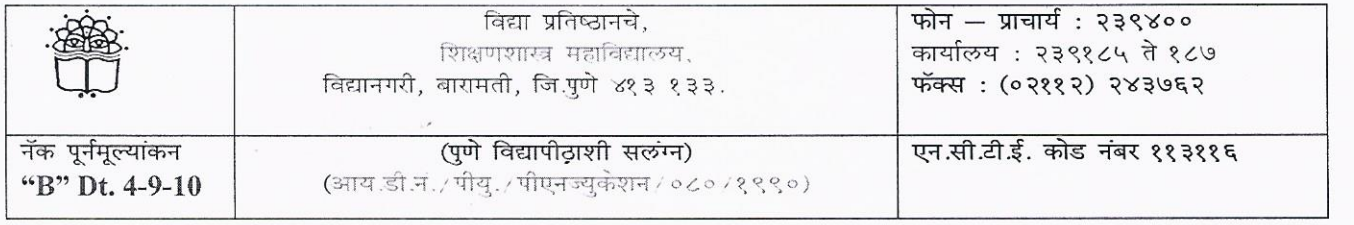 विद्या प्रतिष्ठानचे,
शिक्षणशास्त्र महाविद्यालय,
विद्यानगरी, बारामती, जि.पुणे ४१३ १३३.
फोन – प्राचार्य : २३९४००
कार्यालय : २३९१८५ ते १८७
फॅक्स : (०२११२) २४३७६२
नॅक पूर्नमूल्यांकन
“B” Dt. 4-9-10
(पुणे विद्यापीठाशी सलंग्न)
(आय.डी.नं./पीयु./पीएनज्युकेशन/०८०/१९९०)
एन.सी.टी.ई. कोड नंबर ११३११६